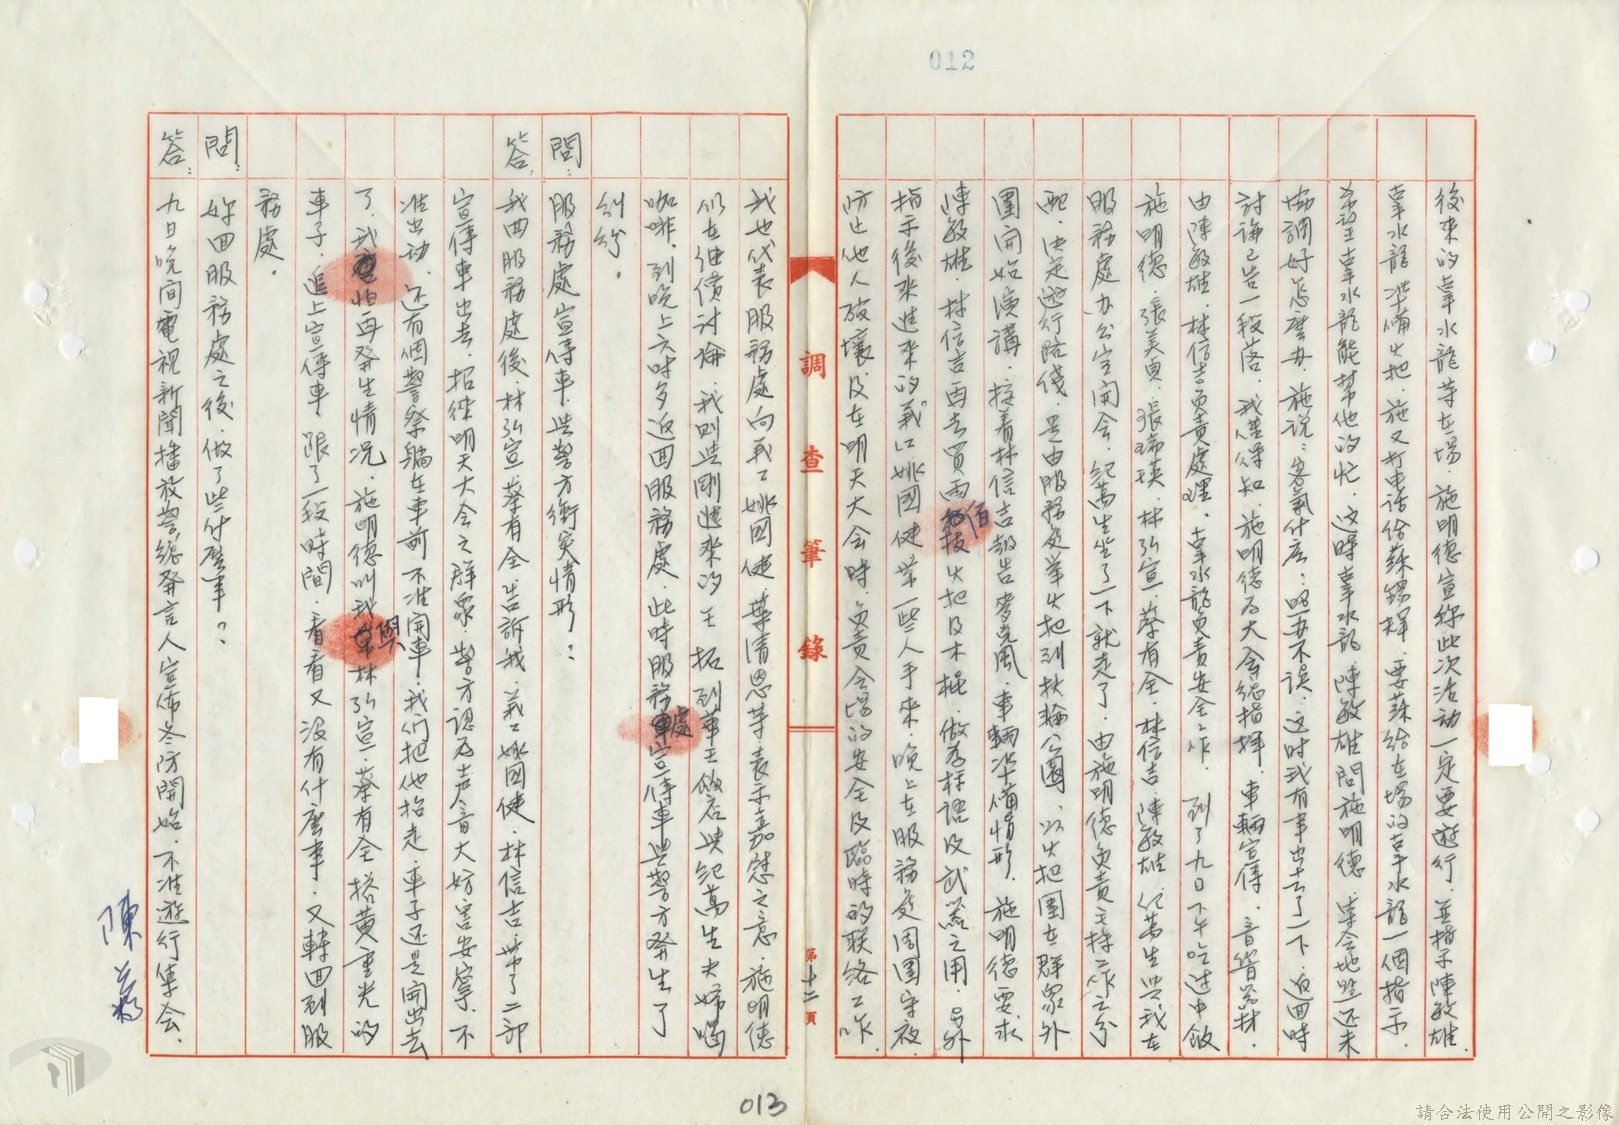 012
後來的辜水龍等在場，施明德宣称此次活动一定要遊行，並指示陳敏雄、
辜水龍準備火把，施又打电话给蘇錫輝，要蘇给在場的辜水龍一個指示，
希望辜水龍能幫他的忙，这時辜水龍、陳敏雄問施明德，辜会地点还未
協調好怎麼办，施說：客氣什么，照办不误。这时我有事出去了一下，返回時
討論已告一段落，我僅得知，施明德为大会總指揮，車輛宣傳，音响器材，
由陳敏雄、林信吉負責處理，辜水龍負責安全工作，到了九日下午吃过中飯
施明德、張美貞、張瑞瑛、林弘宣、蔡有全、林信吉、陳敏雄、纪萬生與我在
服務處办公室開会，紀萬生坐了一下就走了，由施明德负责主持工作之分
配，决定遊行路线，是由服務处举火把到扶輪公園，以火把圍在群众外
圍開始演講，接着林信吉報告麥克風，車輛準備情形，施明德要求
陳敏雄、林信吉再去買兩佰枝火把及木棍，做为标語及武器之用，另外
指示後來進來的義工姚國健帶一些人手來，晚上在服務处周圍守夜，
防止他人破壞，及在明天大会時，负责会場的安全及臨時的联络工作，
調查筆錄
第十二頁
我也代表服務處向義工姚國健、葉清恩等表示嘉慰之意，施明德
們在継續討論，我則與剛進來的王拓到華王飯店與紀萬生夫婦喝
咖啡，到晚上六時多返回服務處，此時服務處宣傳車與警方發生了
糾紛。
問：服務處宣傳車與警方衝突情形？
答：我回服務處後，林弘宣、蔡有全告訴我，義工姚國健、林信吉，帶了二部
宣傳車出去，招徠明天大会之群眾，警方認为声音大妨害安寧，不
准出动，还有個警察躺在車前不准開車，我们把他抬走，車子还是開出去
了，我怕再發生情况，施明德叫我與林弘宣、蔡有全搭黃重光的
車子，追上宣傳車，跟了一段時間，看看又没有什麼事，又轉回到服
務處。
問：妳回服務處之後，做了些什麼事？
答：九日晚间電視新聞播放警總發言人宣佈冬防開始，不准遊行集会，
陳菊
013
請合法使用公開之影像